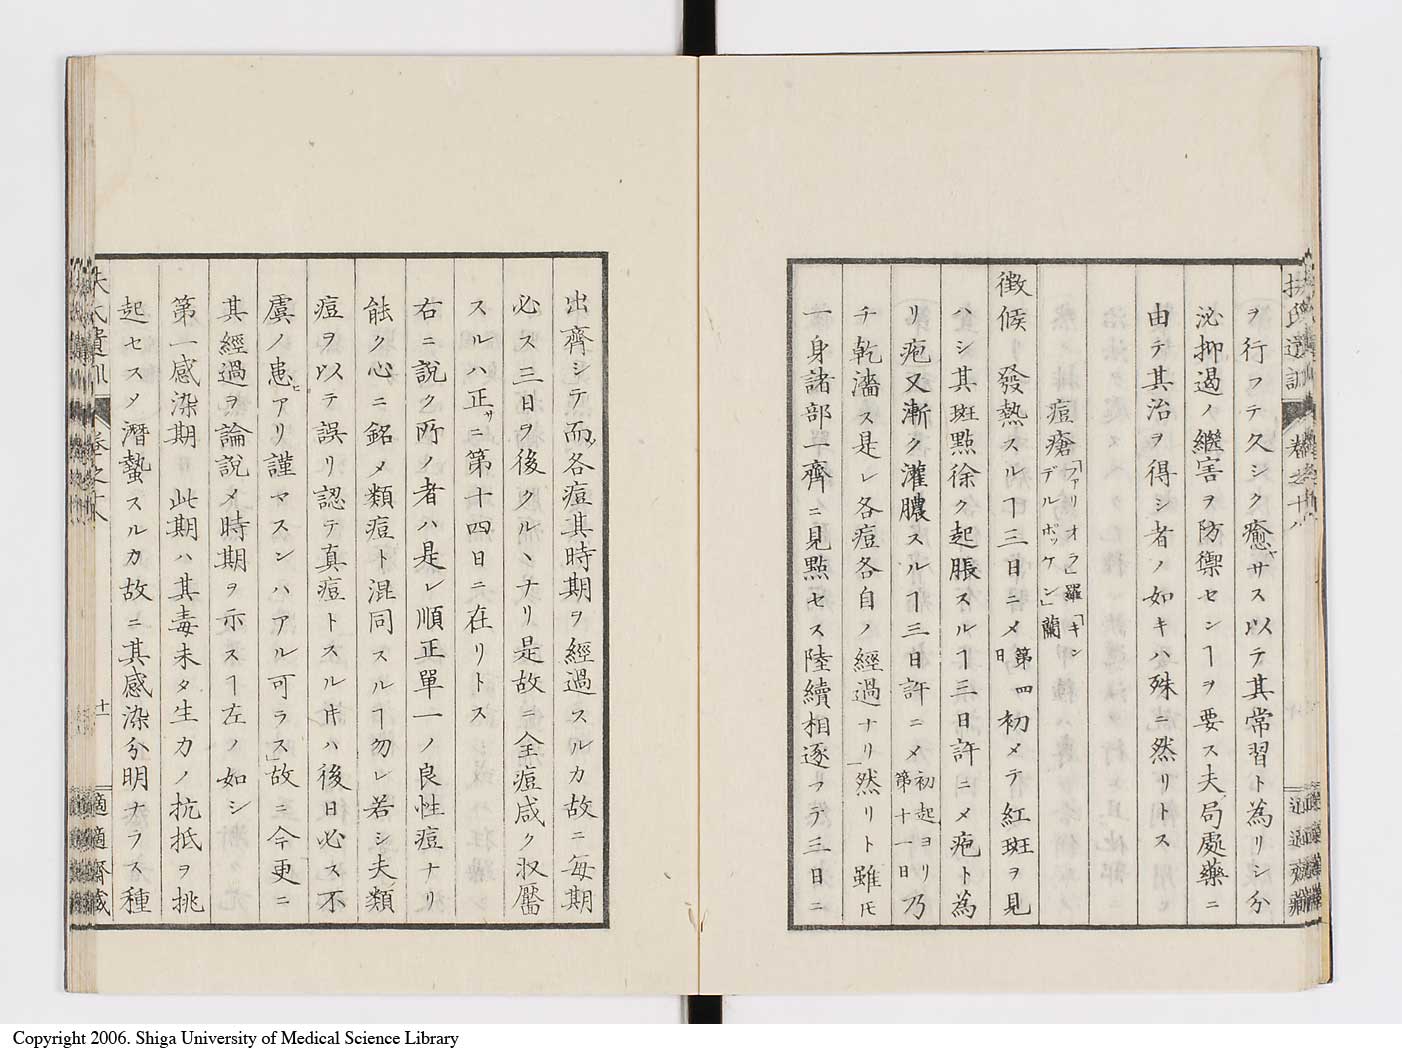 ヲ行フテ久シク癒ヤサス以テ其常習ト為リシ分
泌抑遏ノ繼害ヲ防禦センヿヲ要ス夫局處藥ニ
由テ其治ヲ得シ者ノ如キハ殊ニ然リトス
痘瘡「ファリオラ」羅「キンデルポッケン」蘭
徴候 發熱スルヿ三日ニメ第四日初メテ紅斑ヲ見
ハシ其斑點徐ク起脹スルヿ三日許ニメ疱ト為
リ疱又漸ク灌膿スルヿ三日許ニメ初起ヨリ第十一日乃
チ乾濇ス是レ各痘各自ノ經過ナリ然リト雖𪜈
一身諸部一齊ニ見點セス陸續相逐フテ三日ニ
出齊シテ而各痘其時期ヲ經過スルカ故ニ毎期
必ス三日ヲ後クルヽナリ是故ニ全痘咸ク收靨
スルハ正サニ第十四日ニ在リトス
右ニ説ク所ノ者ハ是レ順正單一ノ良性痘ナリ
能ク心ニ銘メ類痘ト混同スルヿ勿レ若シ夫類
痘ヲ以テ誤リ認テ真痘トスル𪜈ハ後日必ス不
虞ノ患ヒアリ謹マスンハアル可ラス故ニ今更ニ
其經過ヲ論説メ時期ヲ示スヿ左ノ如シ
第一感染期 此期ハ其毒未タ生力ノ抗抵ヲ挑
起セスメ潛蟄スルカ故ニ其感染分明ナラス種
扶氏遺訓 卷之十六
十一
適適齋藏